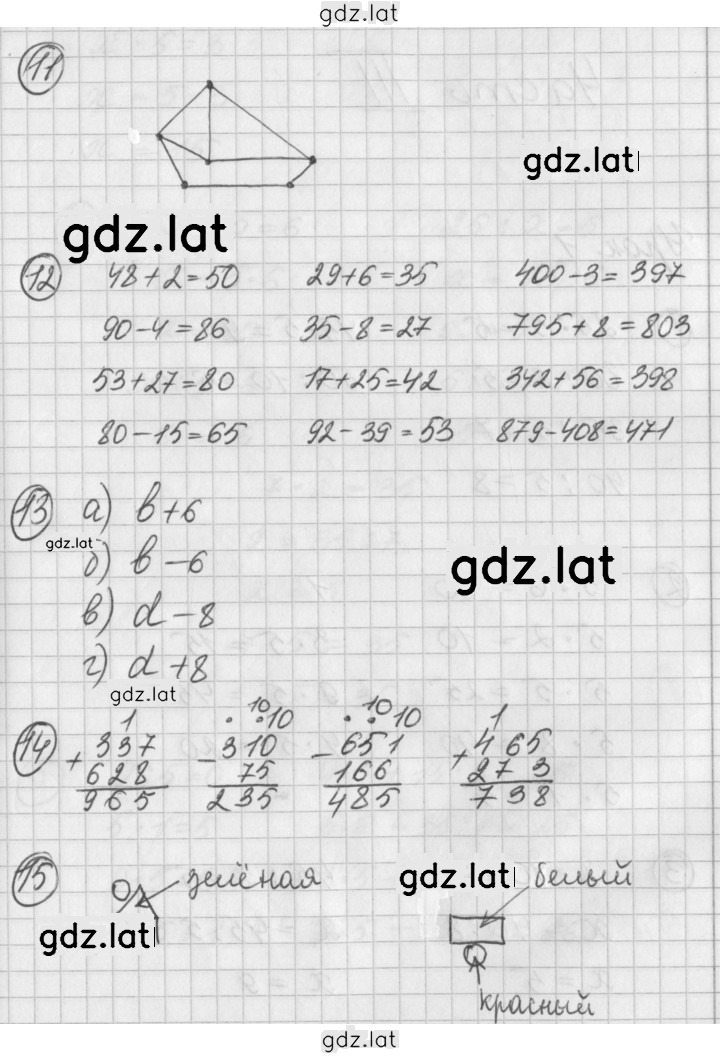 gdz.lat
11
gdz.lat
gdz.lat
12 48+2=50 29+6=35 400-3=397
90-4=86 35-8=27 795+8=803
53+27=80 17+25=42 342+56=398
80-15=65 92-39=53 879-408=471
13 а) b+6
gdz.lat
б) b-6
gdz.lat
в) d-8
г) d+8
gdz.lat
1 . .10 10 . .10 10 1
14 + 337 - 310 - 651 + 465
628 75 166 273
965 235 485 738
15 зелёная gdz.lat белый
gdz.lat
красный
gdz.lat